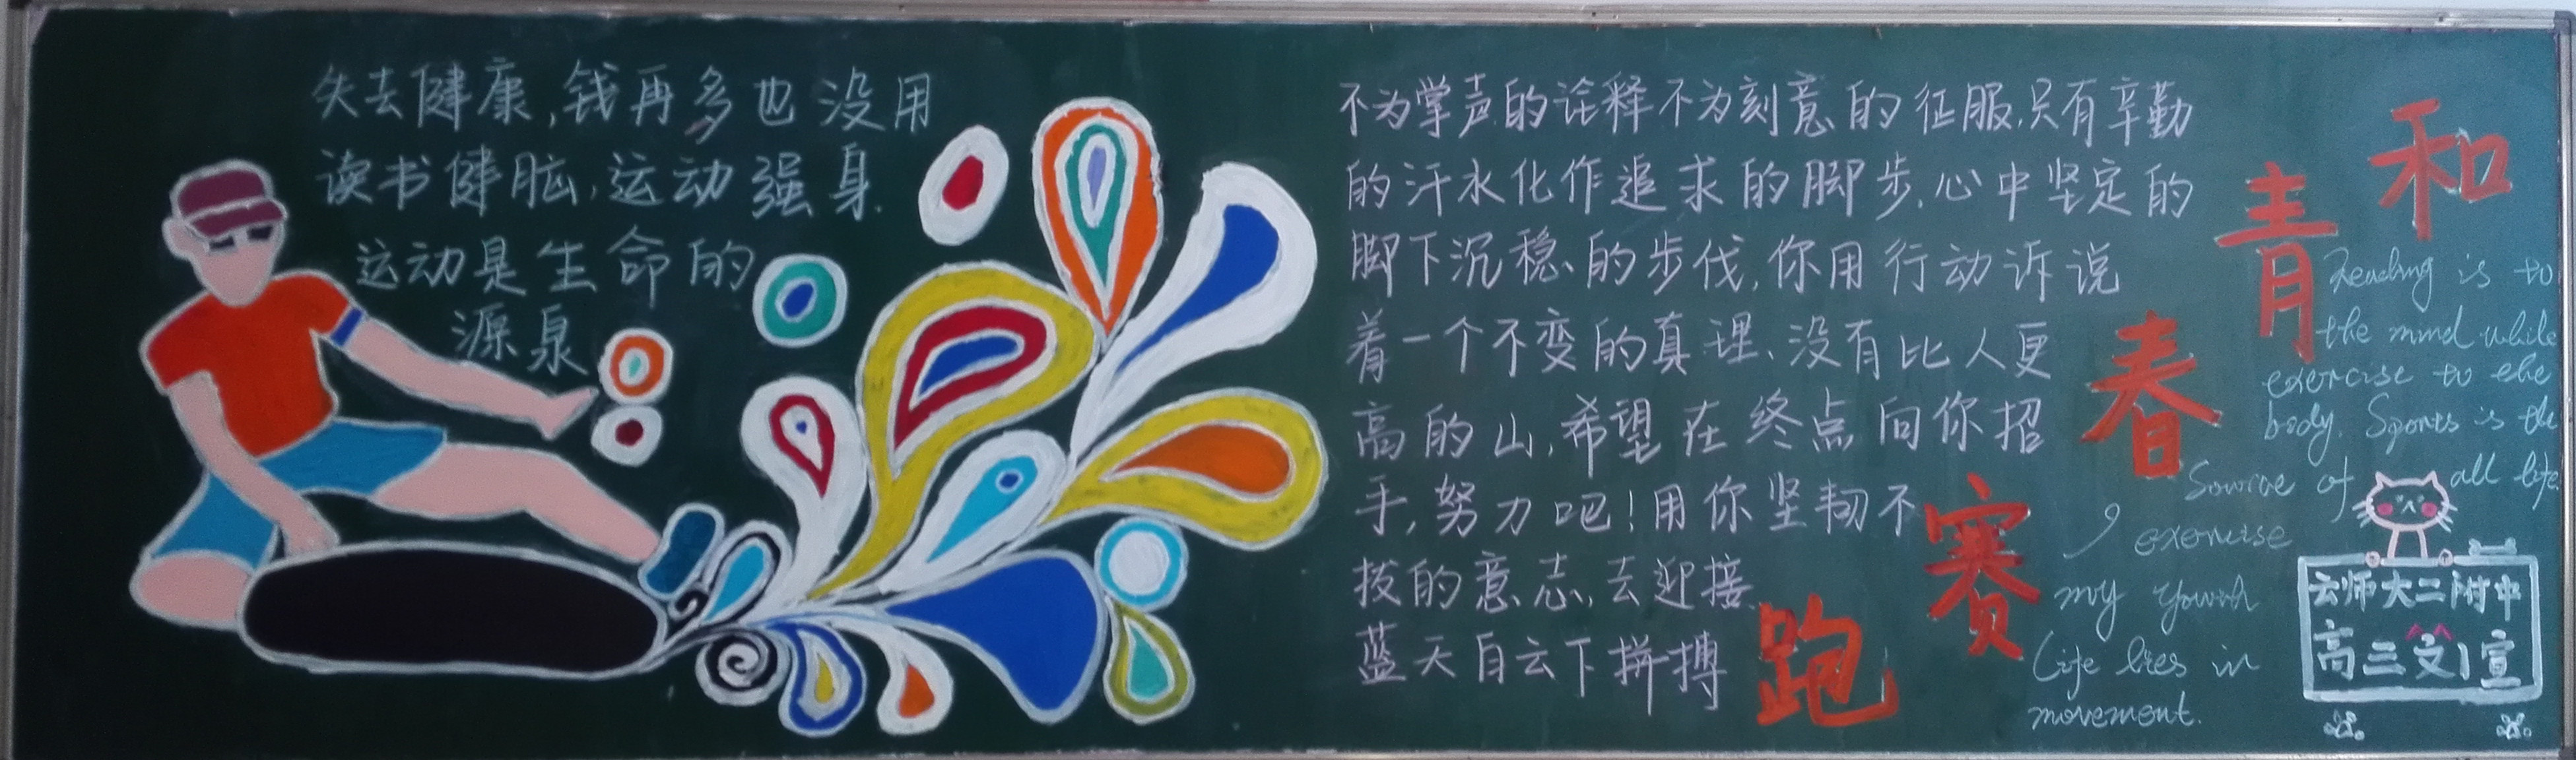 失去健康,钱再多也没用
读书健脑,运动强身.
运动是生命的
源泉
不为掌声的诠释不为刻意的征服,只有辛勤
的汗水化作追求的脚步,心中坚定的
脚下沉稳的步伐,你用行动诉说
着一个不变的真理、没有比人更
高的山,希望在终点向你招
手,努力吧!用你坚韧不
拔的意志,去迎接
蓝天白云下拼搏
和青春赛跑
Reading is to
the mind while
exercise to the
body. Sports is the
Source of all life.
I exercise
my youth
Life lies in
movement.
云师大二附中
高三文1宣